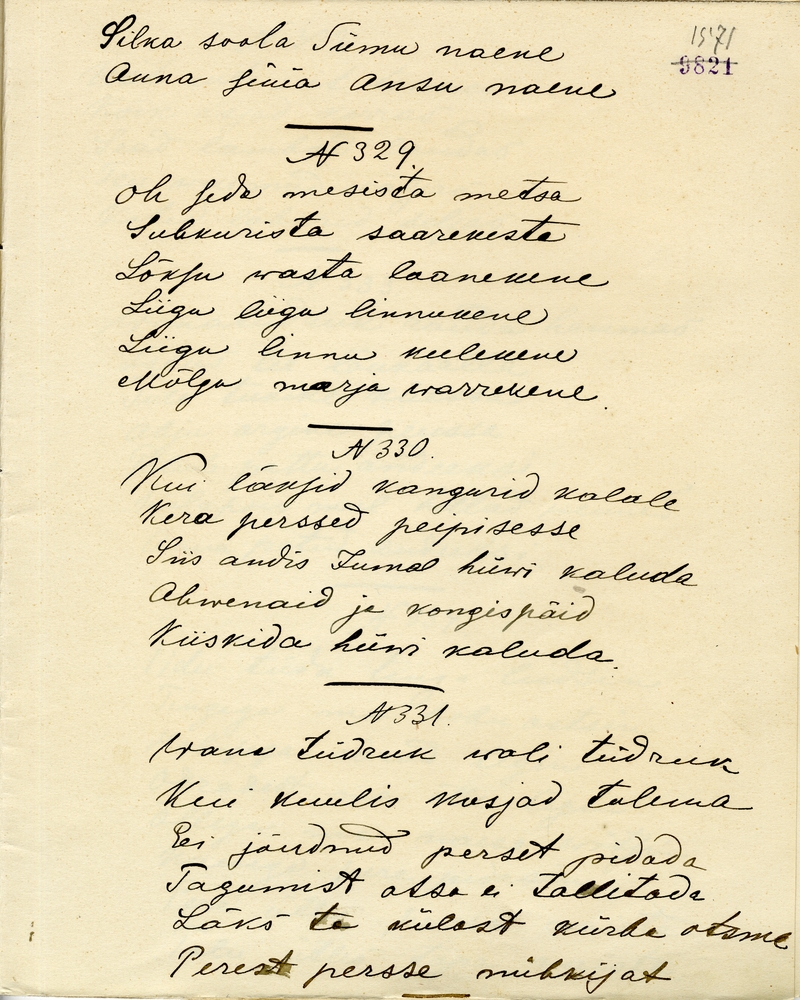 Silka soola Siimu naene
1571
9821
Anna jüia Ansu naene
N 329.
Oh seda mesista metsa
Suhkurista saarekesta
Lõksu wasta laanekene
Liigu liigu linnukene
Liigu linnu keelekene
Mõlgu marja warrekene.
N 330.
Kui läksid kangurid kalale
Kera perssed peipisesse
Siis andis Jumal hüwi kaluda
Ahwenaid ja kongispäid
Kiiskida hüwi kaluda.
N 331.
Wana tüdruk wali tüdruk
Kui kuulis kosjad tulema
Ei jõudnud perset pidada
Tagumist otsa ei tallitada
Läks ta külast kürba otsme
Perest persse nühkijat